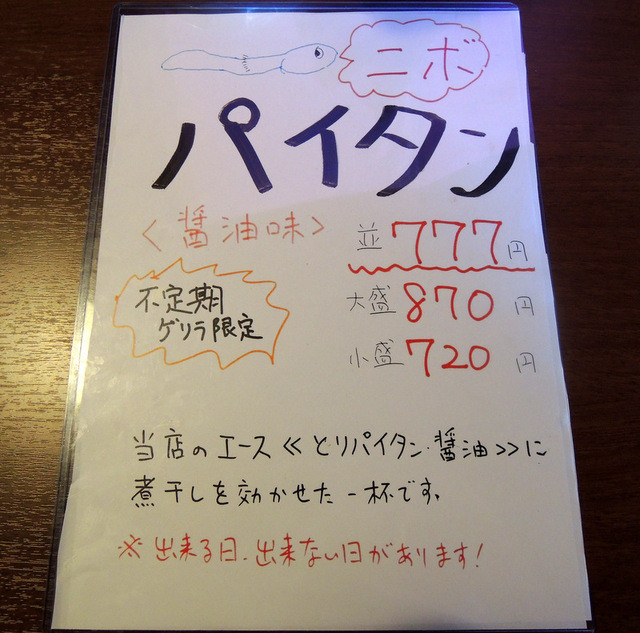 ニボ
パイタン
<醤油味>
並 777円
大盛 870円
小盛 720円
不定期
ゲリラ限定
当店のエース≪とりパイタン・醤油≫に
煮干しを効かせた一杯です。
※出来る日、出来ない日があります!